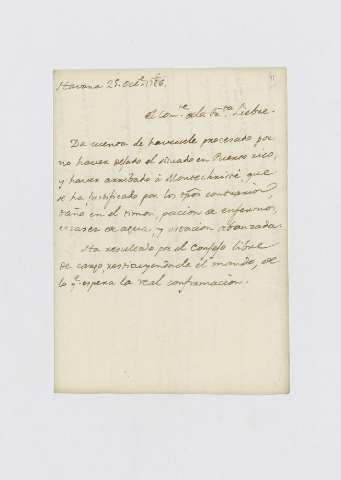 Havana 25. Oct.e 1786
El Com.te de la fra.ta Liebre.
Da cuenta de haversele procesado por
no haver dejado el situado en Puerto rico,
y haver arribado à Montechristi, que
se ha justificado por los tpos contrarios,
daño en el timon, porcion de enfermos,
escases de agua, y estacion abanzada.
Ha resultado por el Consejo libre
de cargo, restituyendole el mando, de
lo q.e espera la real confirmacion.